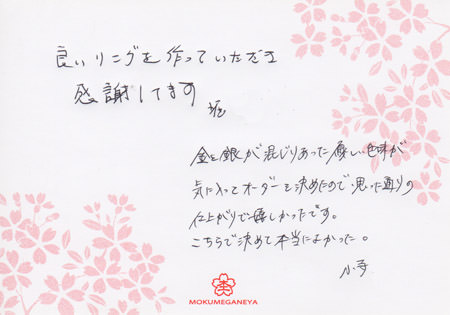 良いリングを作っていただき
感謝してます
堀
金と銀が混じりあった優しい色味が
気に入ってオーダーを決めたので、思った通りの
仕上がりで嬉しかったです。
こちらで決めて本当によかった。
小寺
MOKUMEGANEYA